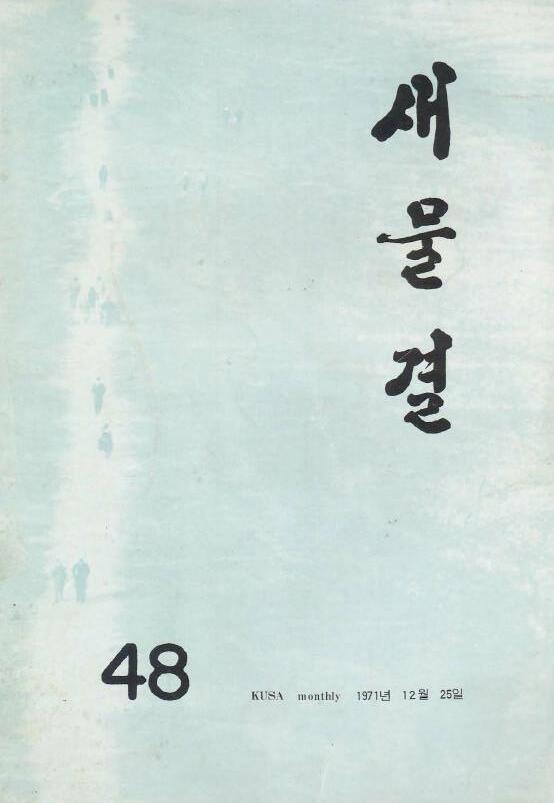 새물결
48
KUSA monthly 1971년 12월 25일